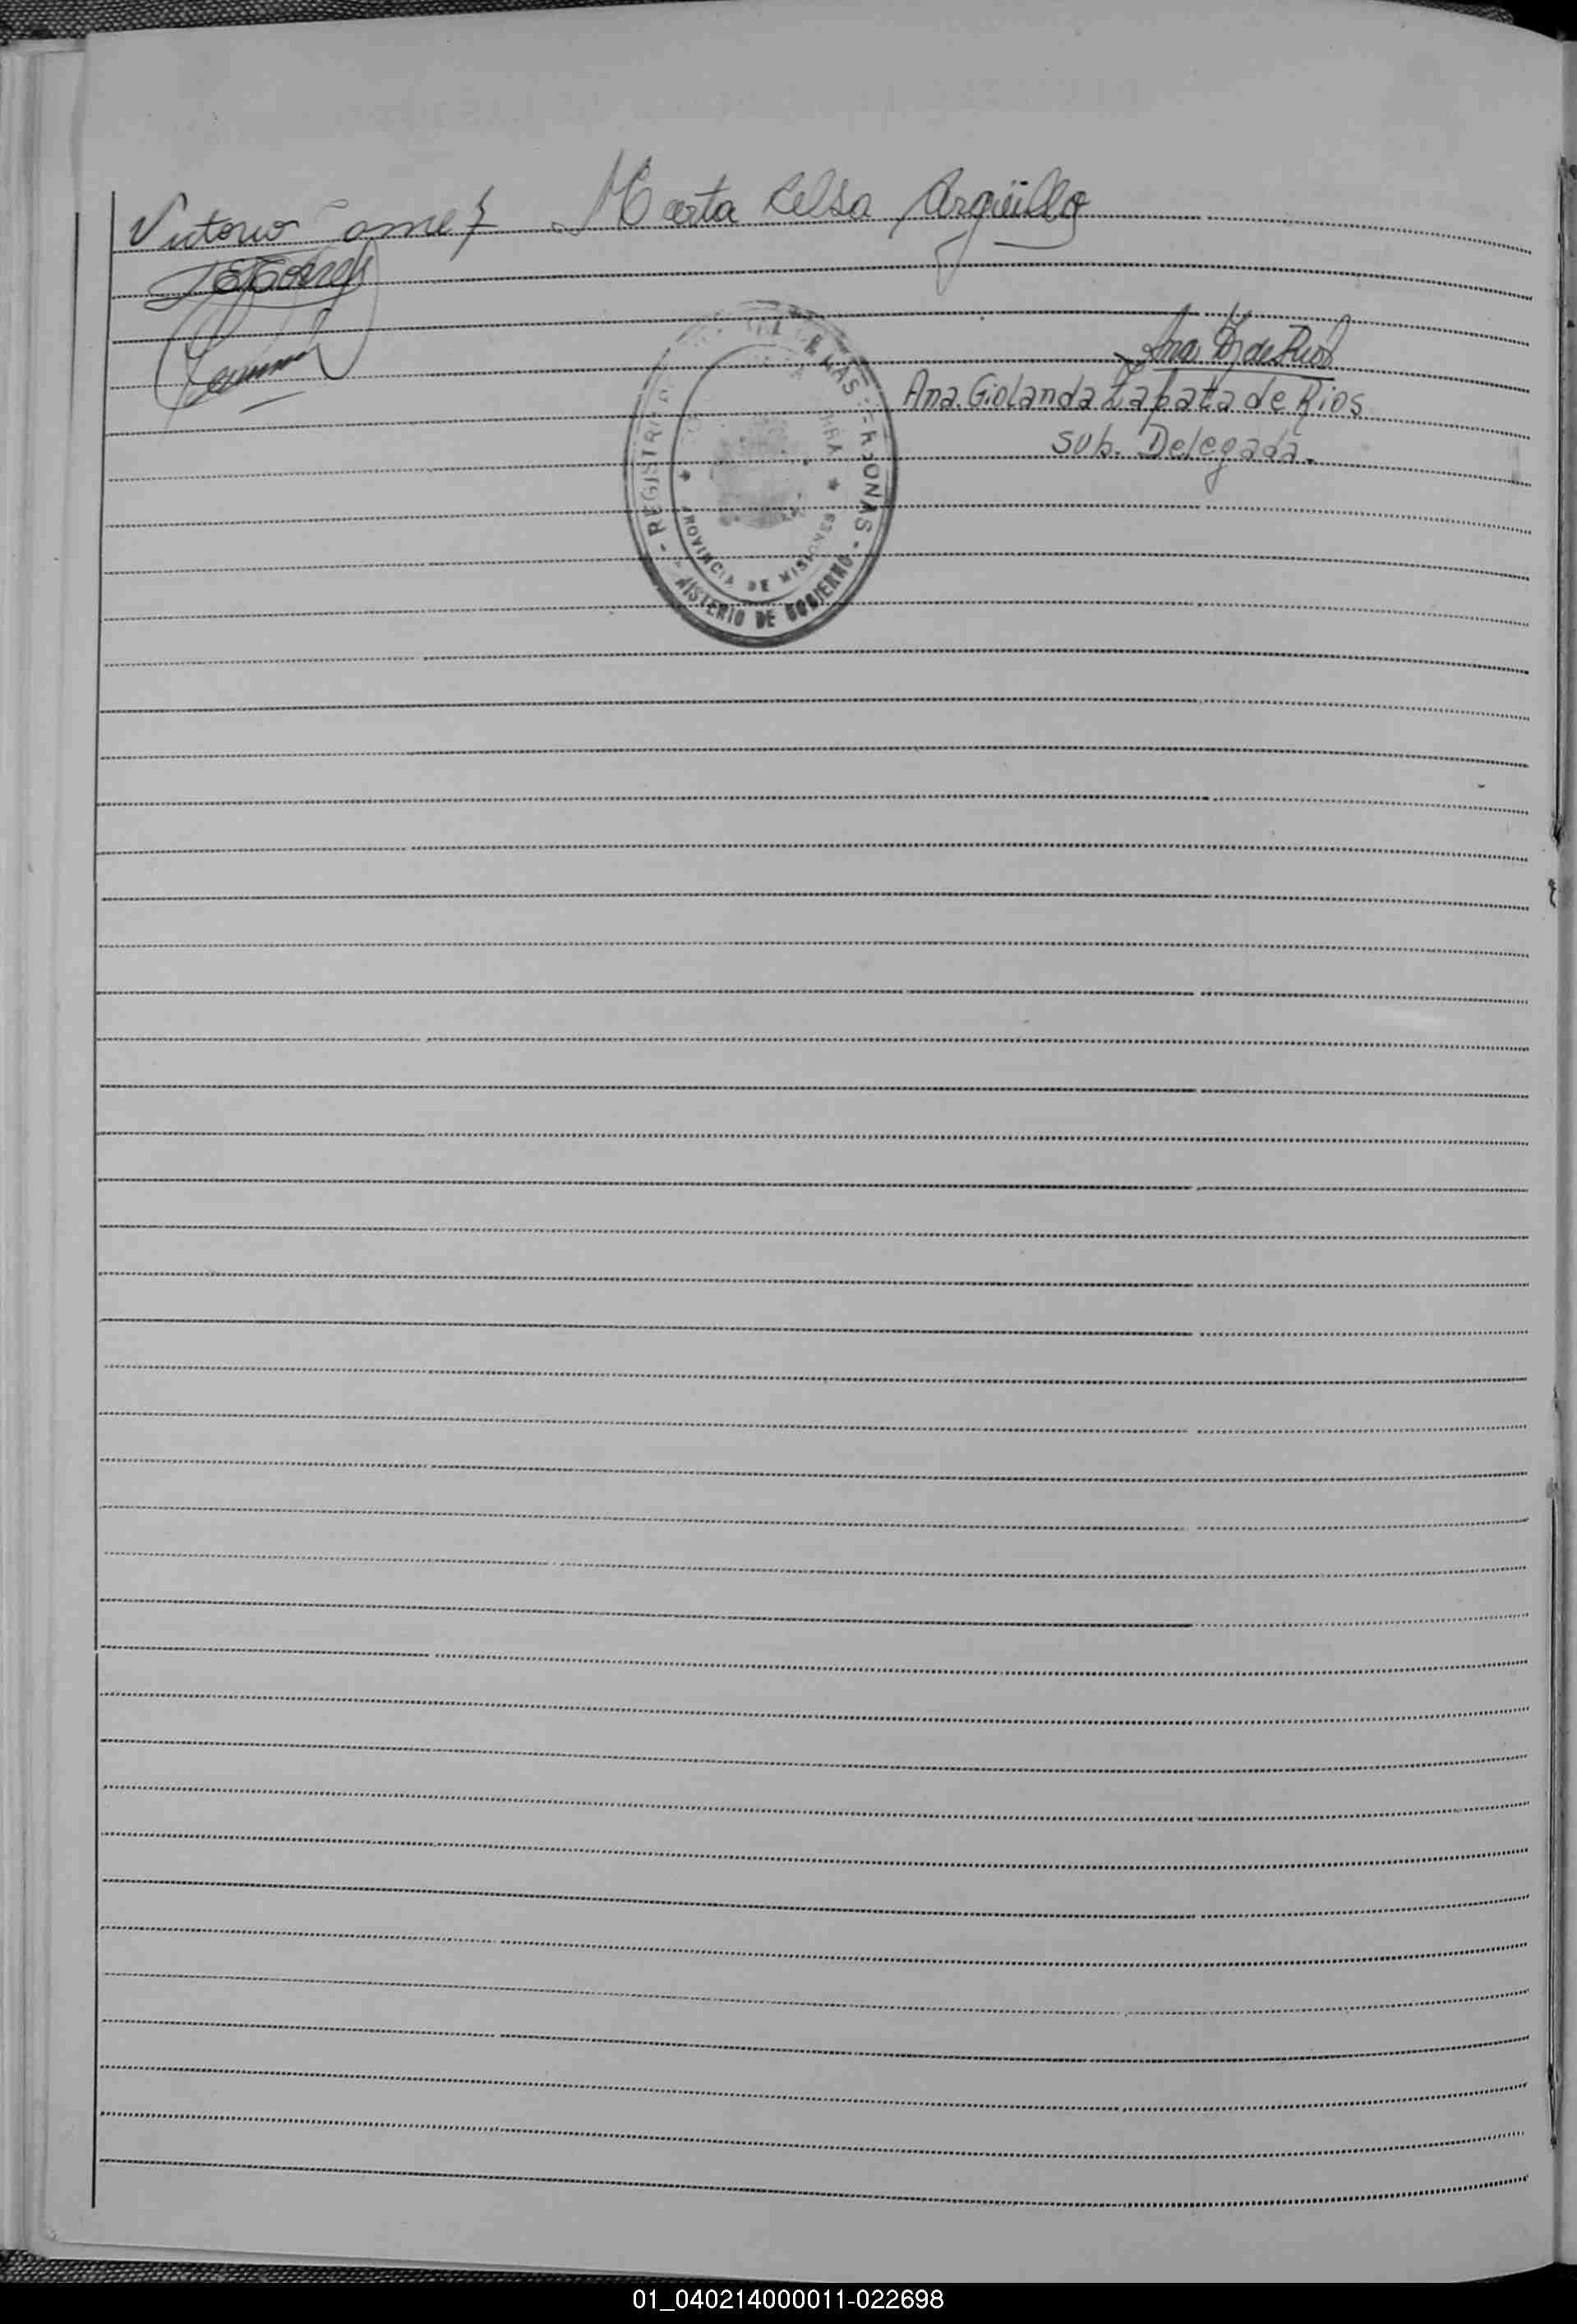 Victorio Gomez Marta Celsa Argüello
Ana Z. de Rios
Ana. Giolanda Zapata de Rios
Sub. Delegada.
- REGISTRO PERSONAS -
PROVINCIA DE MISIONES
MINISTERIO DE GOBIERNO
01_040214000011-022698